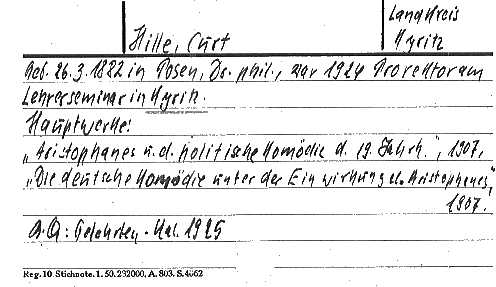 Landkreis
Hille, Curt Kyritz
Geb. 26.3.1882 in Posen, Dr. phil., war 1924 Prorektor am
Lehrerseminar in Kyritz.
Hauptwerke:
„Aristophanes u. d. politische Komödie d. 19. Jahrh.", 1907,
„Die deutsche Komödie unter der Einwirkung d. Aristophanes,"
1907.
a. Q.: Gelehrten-Kal. 1925
Reg. 10 Stichnote. 1. 50. 232000, A. 803. S. 4062